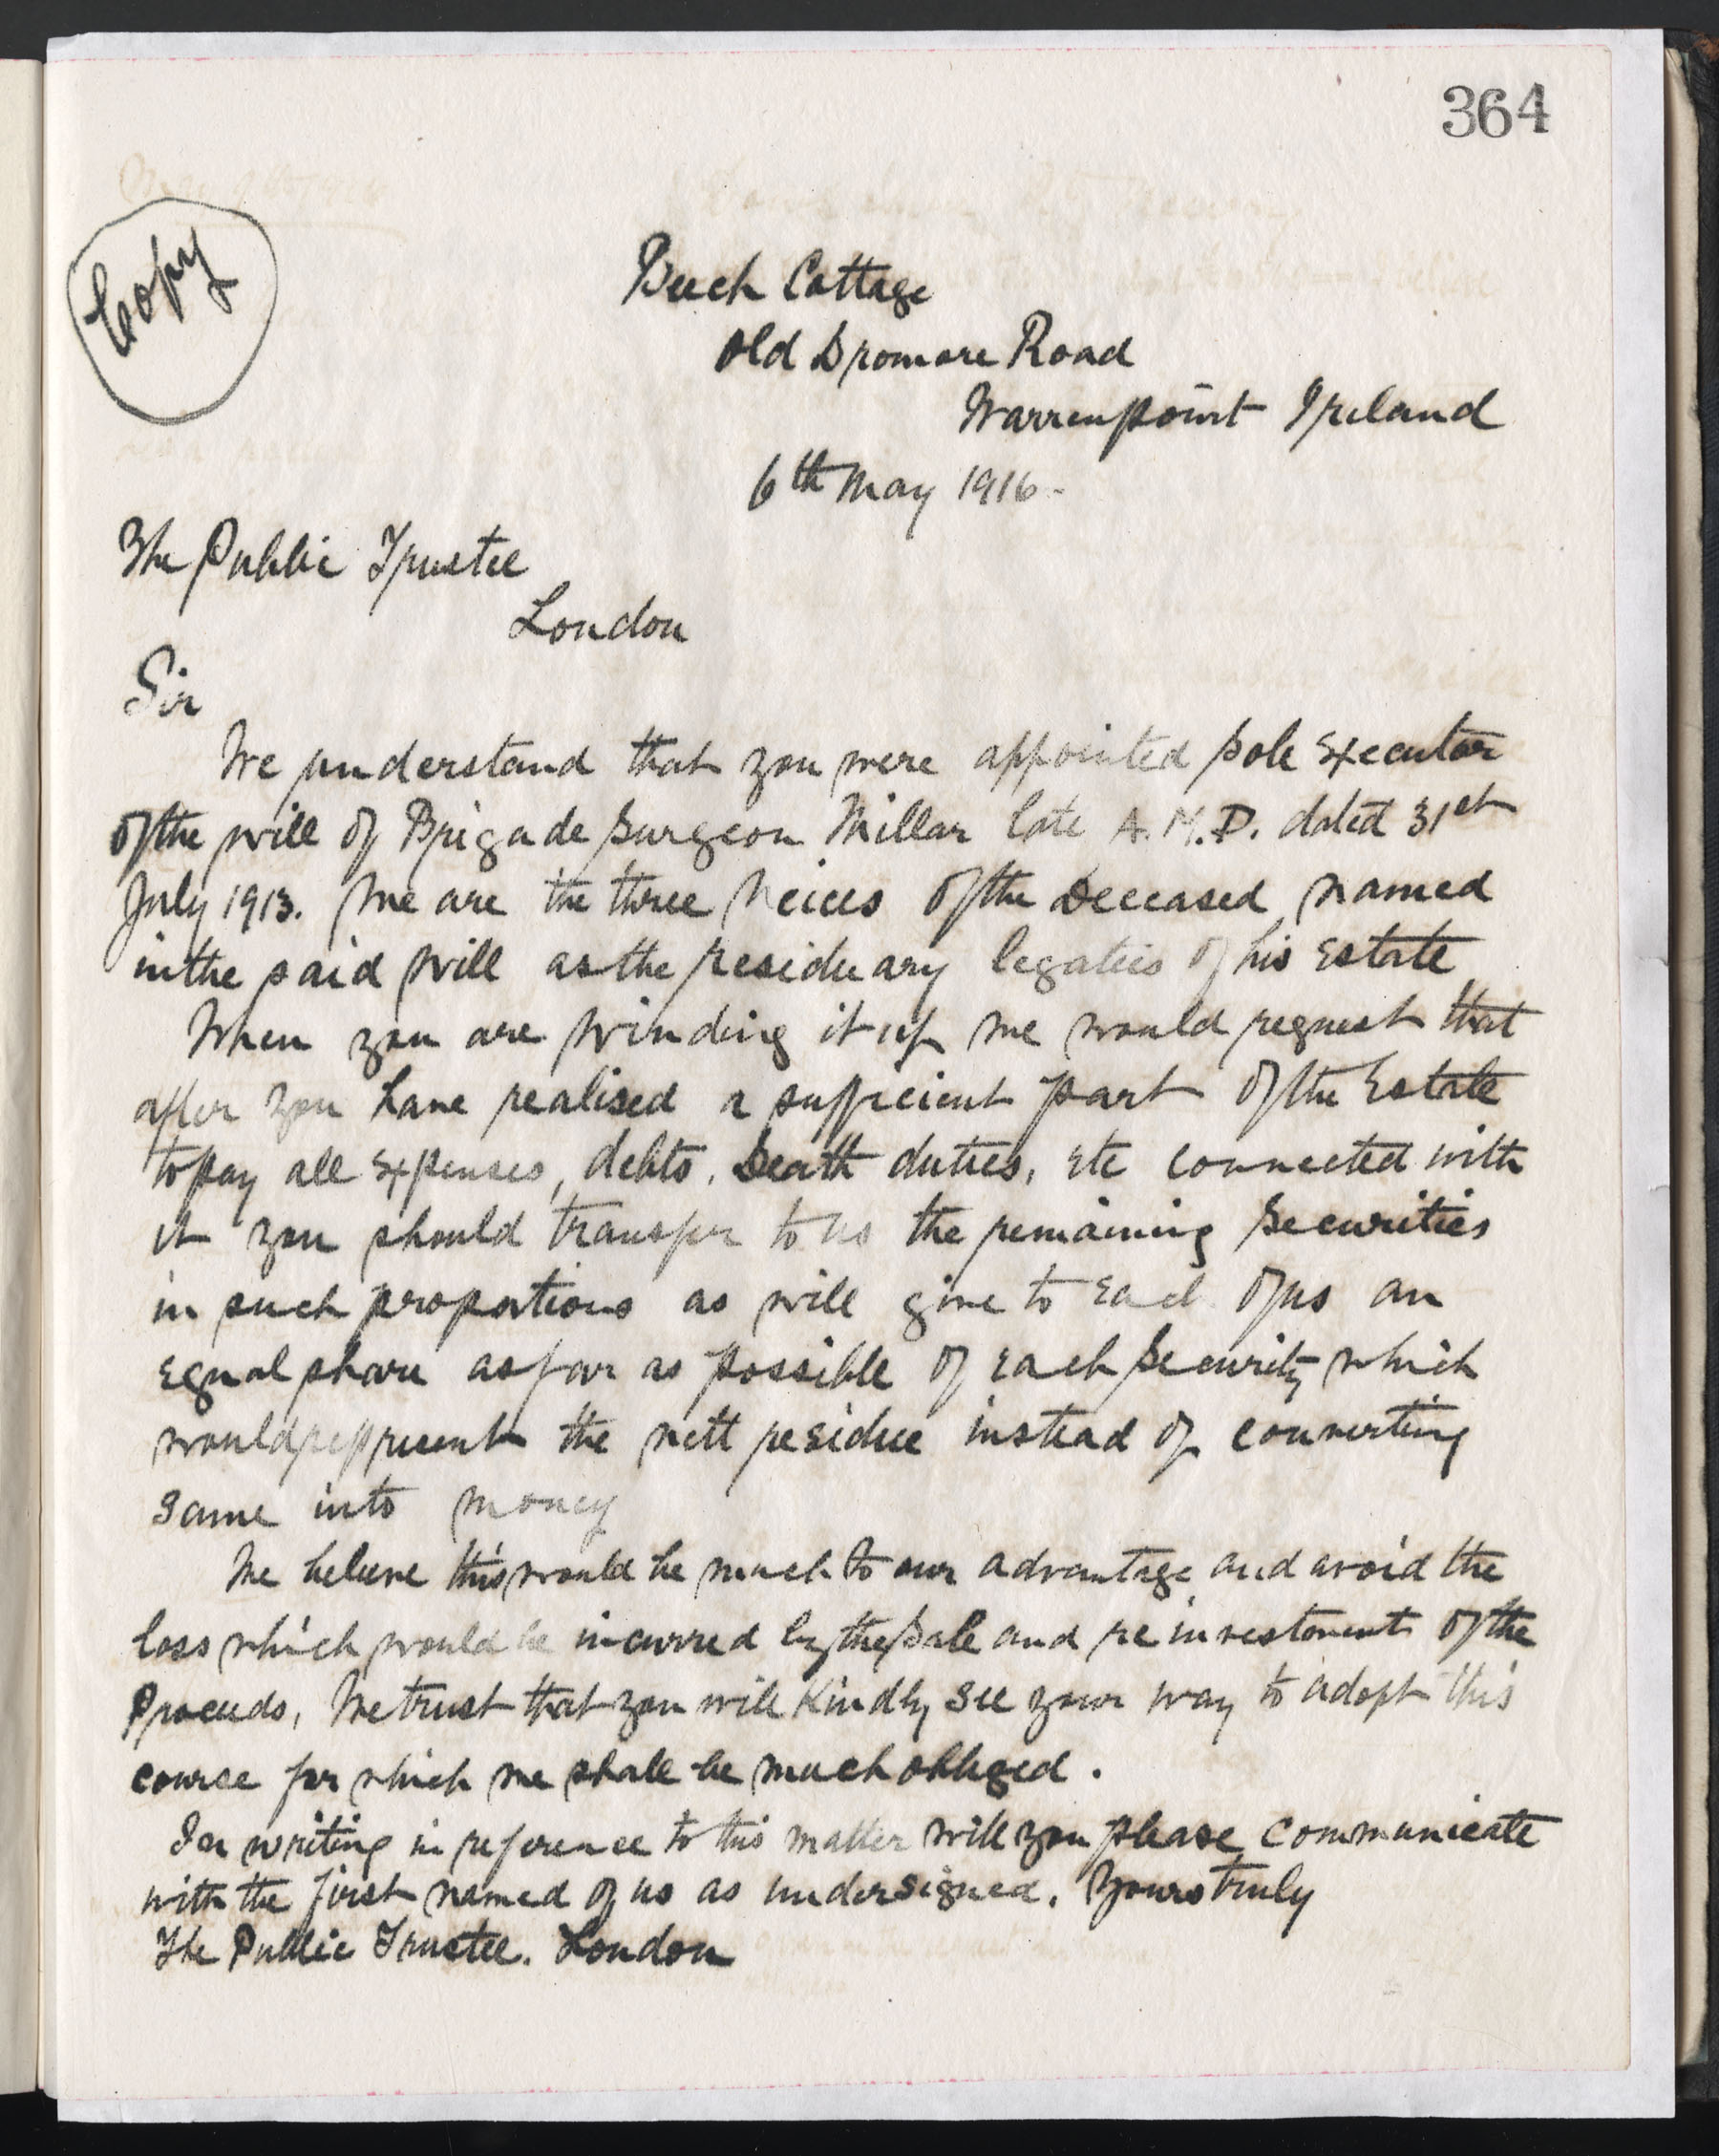 364
Copy
Beech Cottage
Old Dromore Road
Warrenpoint Ireland
6th May 1916-
The Public Trustee
London
Sir
We understand that you were appointed sole Executor
of the will of Brigade Surgeon Millar late A.M.D. dated 31st
July 1913. We are the three Neices of the Deceased named
in the said Will as the residuary legatees of his Estate
When you are winding it up we would request that
after you have realised a sufficient part of the Estate
to pay all Expenses, debts, Death duties, etc connected with
it you should transfer to us the remaining Securities
in such proportions as will give to Each of us an
Equal share as far as possible of Each Security which
would represent the nett residue instead of converting
same into money
We believe this would be much to our advantage and avoid the
loss which would be incurred by the Sale and re investment of the
Proceeds, We trust that you will Kindly see your way to adopt this
course for which we shall be much obliged.
In writing in reference to this matter will you please communicate
with the first named of us as undersigned. Yours truly
The Public Trustee. London